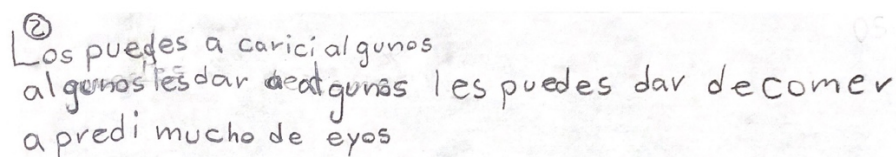 ②
Los puedes a carici algunos
algunos les dar de algunos les puedes dar decomer
a predi mucho de eyos